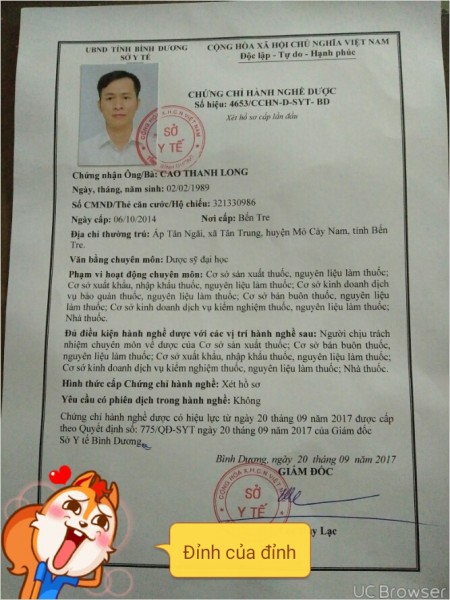 UBND TỈNH BÌNH DƯƠNG
SỞ Y TẾ
CỘNG HÒA XÃ HỘI CHỦ NGHĨA VIỆT NAM
Độc lập - Tự do - Hạnh phúc
CHỨNG CHỈ HÀNH NGHỀ DƯỢC
Số hiệu: 4653/CCHN-D-SYT- BD
Xét hồ sơ cấp lần đầu
SỞ
Y TẾ
Chứng nhận Ông/Bà: CAO THANH LONG
Ngày, tháng, năm sinh: 02/02/1989
Số CMND/Thẻ căn cước/Hộ chiếu: 321330986
Ngày cấp: 06/10/2014 Nơi cấp: Bến Tre
Địa chỉ thường trú: Ấp Tân Ngãi, xã Tân Trung, huyện Mỏ Cày Nam, tỉnh Bến
Tre.
Văn bằng chuyên môn: Dược sỹ đại học
Phạm vi hoạt động chuyên môn: Cơ sở sản xuất thuốc, nguyên liệu làm thuốc;
Cơ sở xuất khẩu, nhập khẩu thuốc, nguyên liệu làm thuốc; Cơ sở kinh doanh dịch
vụ bảo quản thuốc, nguyên liệu làm thuốc; Cơ sở bán buôn thuốc, nguyên liệu
làm thuốc; Cơ sở kinh doanh dịch vụ kiểm nghiệm thuốc, nguyên liệu làm thuốc;
Nhà thuốc.
Đủ điều kiện hành nghề dược với các vị trí hành nghề sau: Người chịu trách
nhiệm chuyên môn về dược của Cơ sở sản xuất thuốc; Cơ sở bán buôn thuốc,
nguyên liệu làm thuốc; Cơ sở xuất khẩu, nhập khẩu thuốc, nguyên liệu làm thuốc;
Cơ sở kinh doanh dịch vụ kiểm nghiệm thuốc, nguyên liệu làm thuốc; Nhà thuốc.
Hình thức cấp Chứng chỉ hành nghề: Xét hồ sơ
Yêu cầu có phiên dịch trong hành nghề: Không
Chứng chỉ hành nghề dược có hiệu lực từ ngày 20 tháng 09 năm 2017 được cấp
theo Quyết định số: 775/QĐ-SYT ngày 20 tháng 09 năm 2017 của Giám đốc
Sở Y tế Bình Dương.
Bình Dương, ngày 20 tháng 09 năm 2017
GIÁM ĐỐC
SỞ
Y TẾ
Lạc
Đỉnh của đỉnh
UC Browser